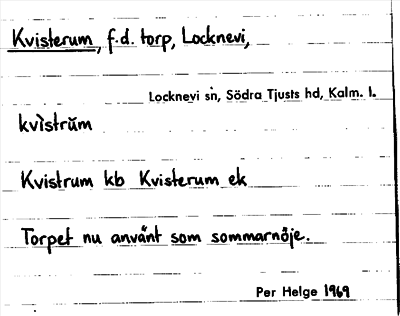 Kvisterum, f.d. torp, Locknevi,
Locknevi sn, Södra Tjusts hd, Kalm. l.
kvìstrŭm
Kvistrum kb Kvisterum ek
Torpet nu använt som sommarnöje.
Per Helge 1969